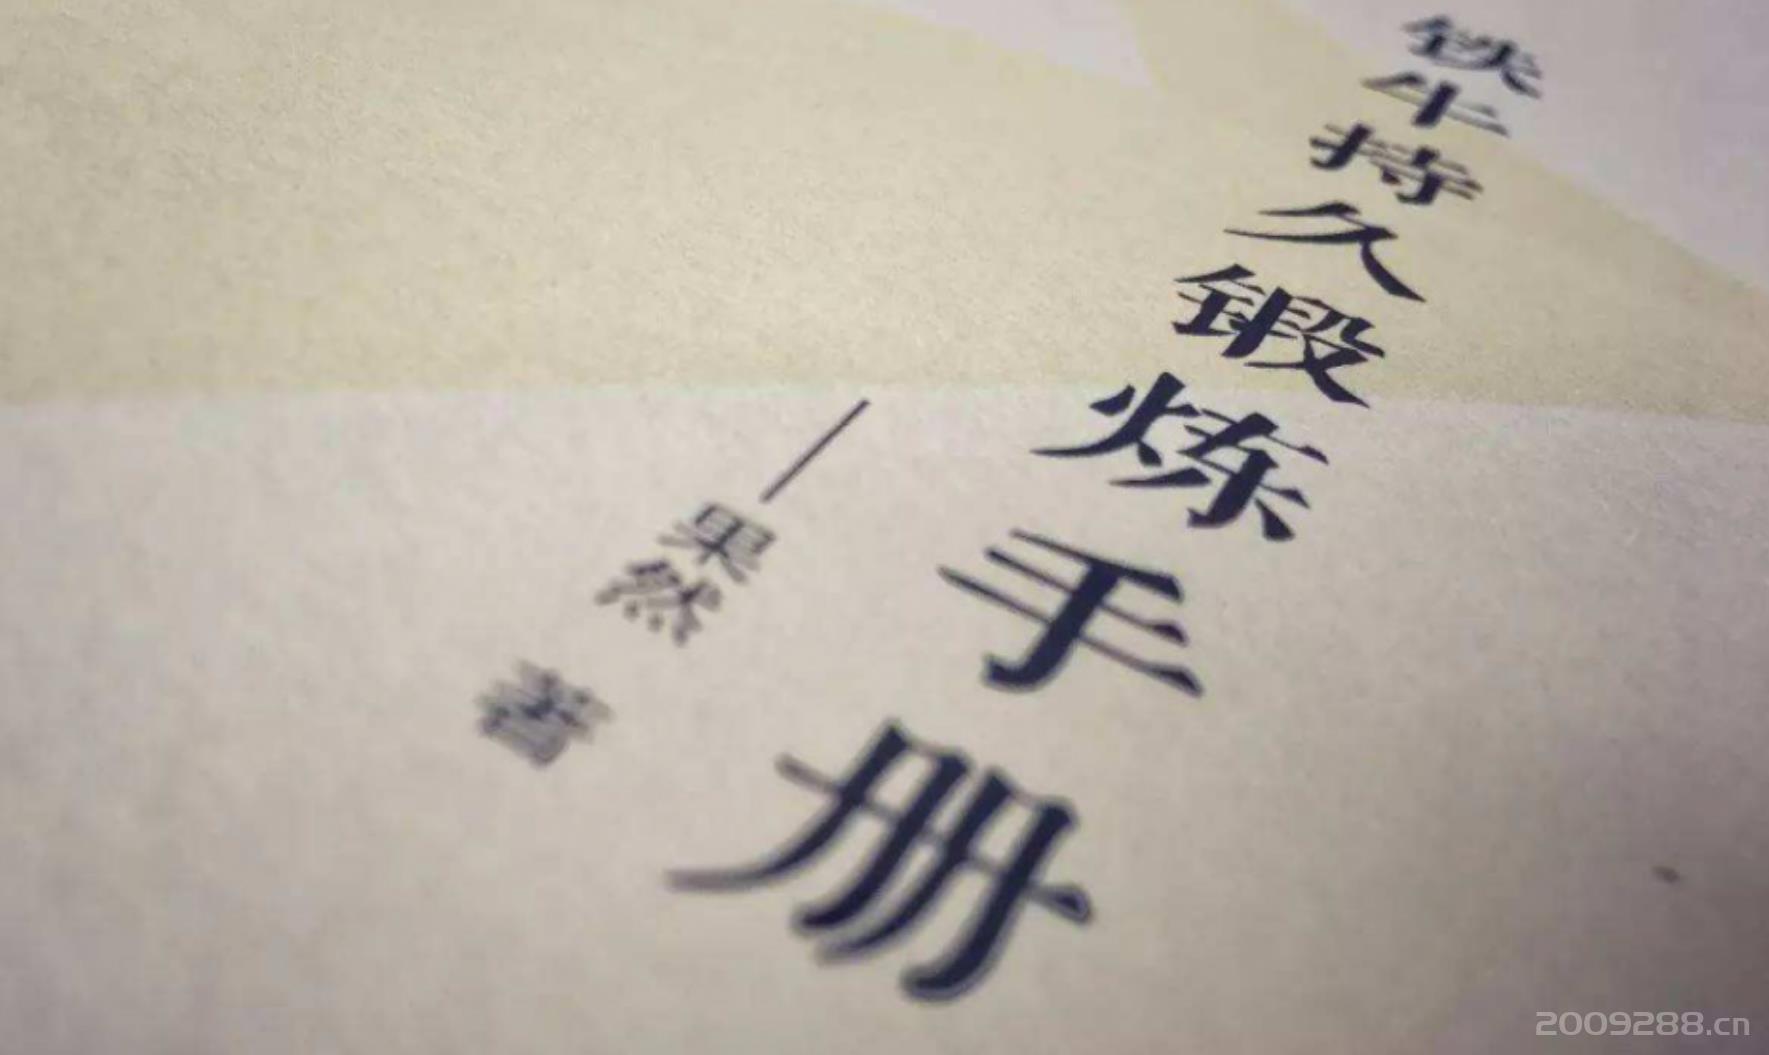 铁牛持久锻炼手册
—果然 著
2009288.cn